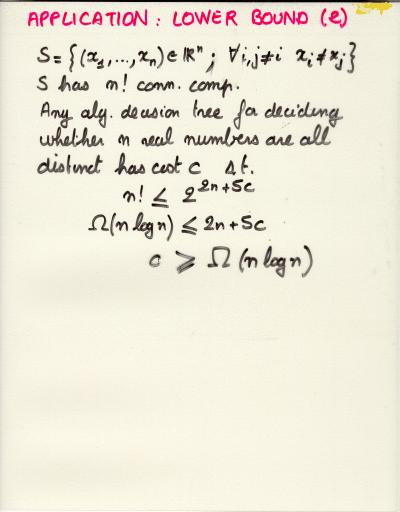 APPLICATION: LOWER BOUND (e)
S = {(x₁,...,xₙ) ∈ ℝⁿ; ∀i,j≠i xᵢ≠xⱼ}
S has n! conn. comp.
Any alg. decision tree for deciding
whether n real numbers are all
distinct has cost c Δt.
n! ≤ 2^{2n+5c}
Ω(n log n) ≤ 2n+5c
c ≥ Ω(n log n)